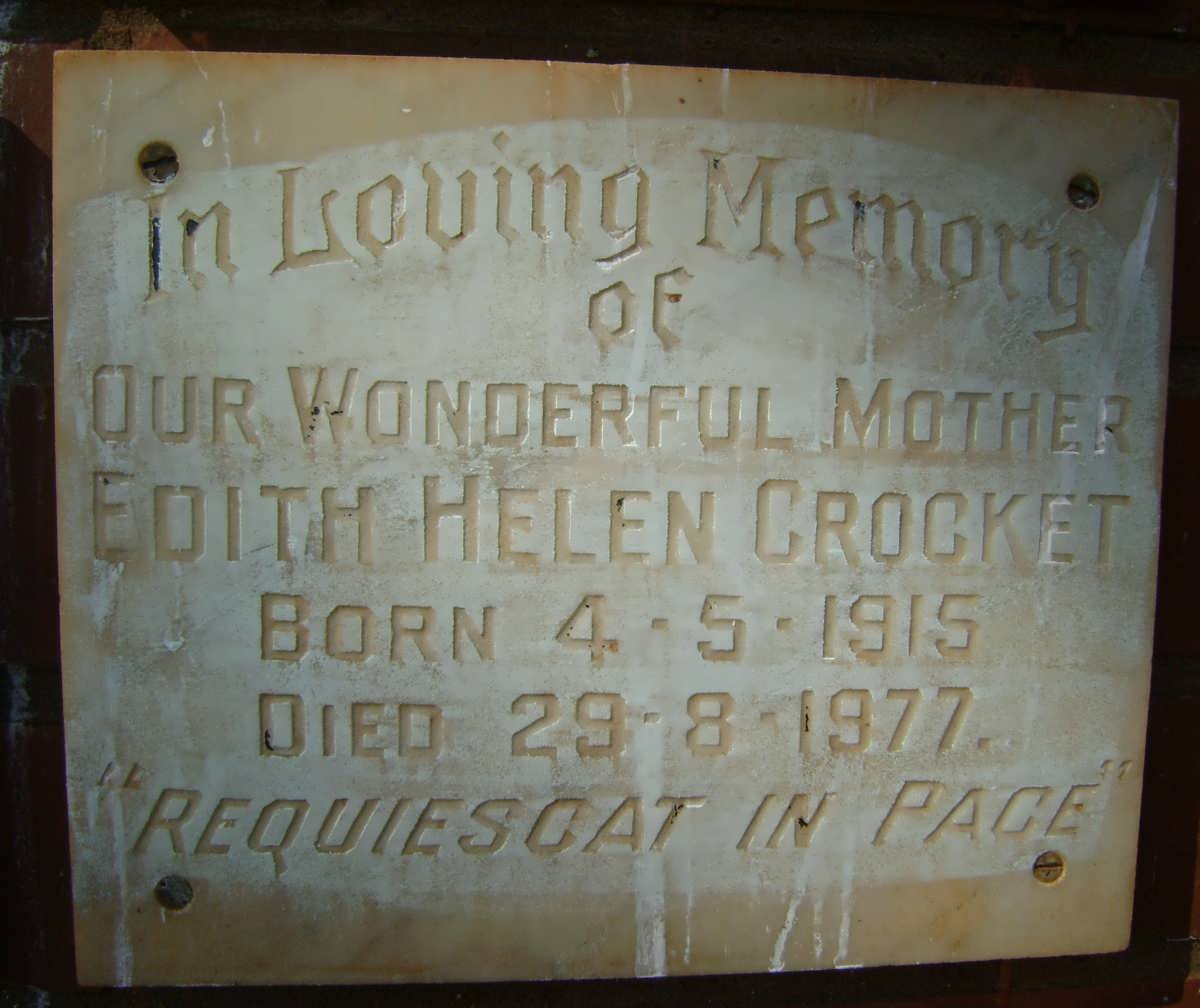 In Loving Memory
of
OUR WONDERFUL MOTHER
EDITH HELEN CROCKET
BORN 4·5·1915
DIED 29·8·1977.
"REQUIESCAT IN PACE"